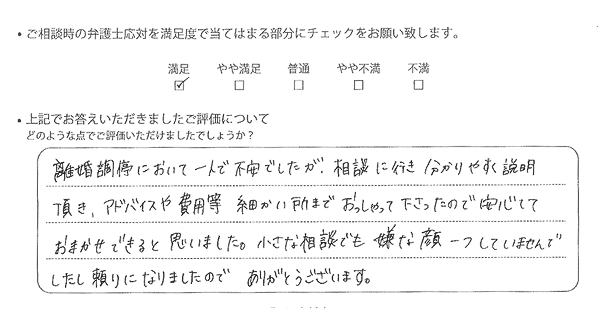 ・ご相談時の弁護士応対を満足度で当てはまる部分にチェックをお願い致します。
満足 やや満足 普通 やや不満 不満
☑ □ □ □ □
・上記でお答えいただきましたご評価について
どのような点でご評価いただけましたでしょうか？
離婚調停において一人で不安でしたが、相談に行き 分かりやすく説明
頂き、アドバイスや費用等 細かい所まで おっしゃって下さったので安心して
おまかせできると思いました。小さな相談でも 嫌な顔一つしていませんで
したし頼りになりましたので ありがとうございます。